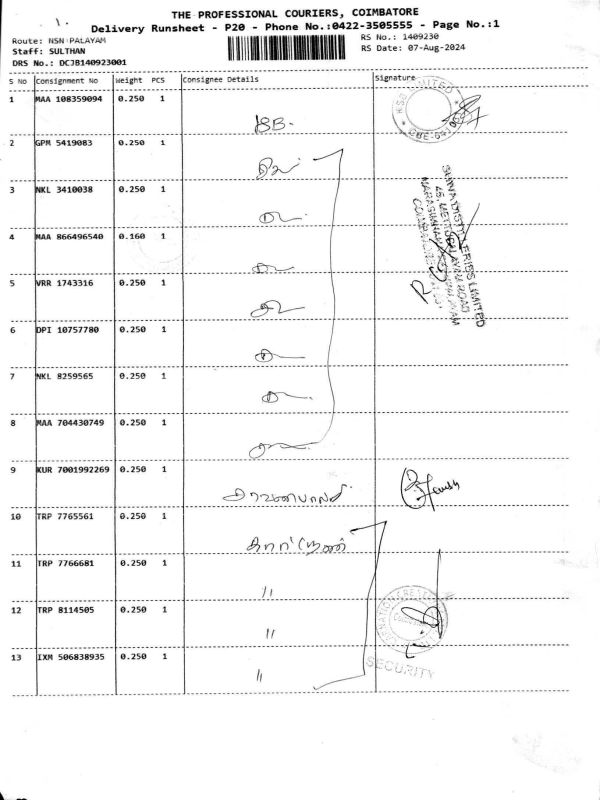 1.
THE PROFESSIONAL COURIERS, COIMBATORE
Delivery Runsheet - P20 - Phone No.:0422-3505555 - Page No.:1
Route: NSN PALAYAM
RS No.: 1409230
Staff: SULTHAN
RS Date: 07-Aug-2024
DRS No.: DCJB140923001
S No Consignment No Weight PCS Consignee Details Signature
1 MAA 108359094 0.250 1
2 GPM 5419083 0.250 1
3 NKL 3410038 0.250 1
4 MAA 866496540 0.160 1
5 VRR 1743316 0.250 1
6 DPI 10757780 0.250 1
7 NKL 8259565 0.250 1
8 MAA 704430749 0.250 1
9 KUR 7001992269 0.250 1
10 TRP 7765561 0.250 1
11 TRP 7766681 0.250 1
"
12 TRP 8114505 0.250 1
"
13 IXM 506838935 0.250 1
"
SHIVA DISTILLERIES LIMITED
SECURITY